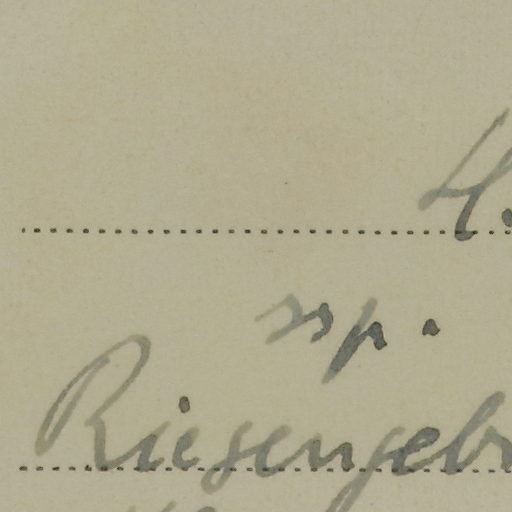 H.
ssp.
Riesengebr